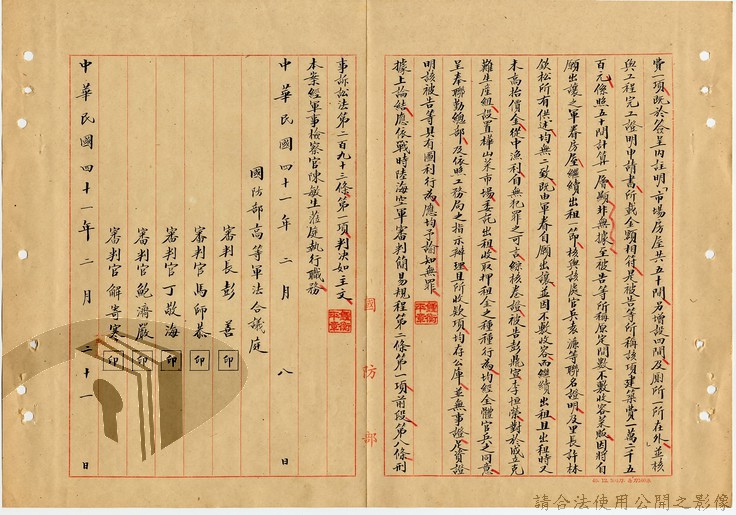 費一項既於簽呈內註明「市場房屋共五十間另增設四間及廁所一所在外」並核
與工程完工證明申請書所載金額相符是被告等所稱該項建築費一萬二千五
百元係照五十間計算一層顯非無據至被告等所稱原定間數不敷收容菜販因將自
願出讓之軍眷房屋繼續出租一節核與該處官兵袁濂等聯名證明及里長許林
欽松所有供述均無二致既由軍眷自願出讓並因不敷收容而繼續出租且出租時又
未高抬價金從中漁利自無犯罪之可言綜核卷證被告彭兆寧李担榮對於成立克
難生產組設置樺山菜市場委託出租收取押租金之種種行為均經全體官兵之同意
呈奉聯勤總部及依照工務局之指示辦理且所收款項均存公庫並無事證足資證
明該被告等具有圖利行為應均予諭知無罪
據上論結應依戰時陸海空軍審判簡易規程第二條第一項前段第八條刑
事訴訟法第二百九十三條第一項判決如主文
本案經軍事檢察官陳敏生蒞庭執行職務
中華民國四十一年二月八日
國防部高等軍法合議庭
審判長彭善 印
審判官馬師恭 印
審判官丁敬海 印
審判官鮑濟嚴 印
審判官解寄寒 印
中華民國四十一年二月二十一日
國防部
請合法使用公開之影像